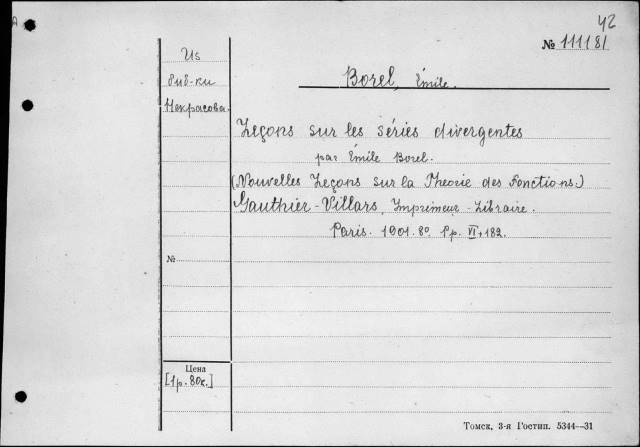 42
№ 111181
Из
биб-ки
Некрасова.
Borel, Émile.
Leçons sur les séries divergentes
par Émile Borel.
(Nouvelles Leçons sur la Théorie des Fonctions.)
Gauthier-Villars, Imprimeur-Libraire.
Paris. 1901. 8º. Pp. VI+182.
№
Цена
[1р. 80к.]
Томск, 3-я Гостип. 5344—31